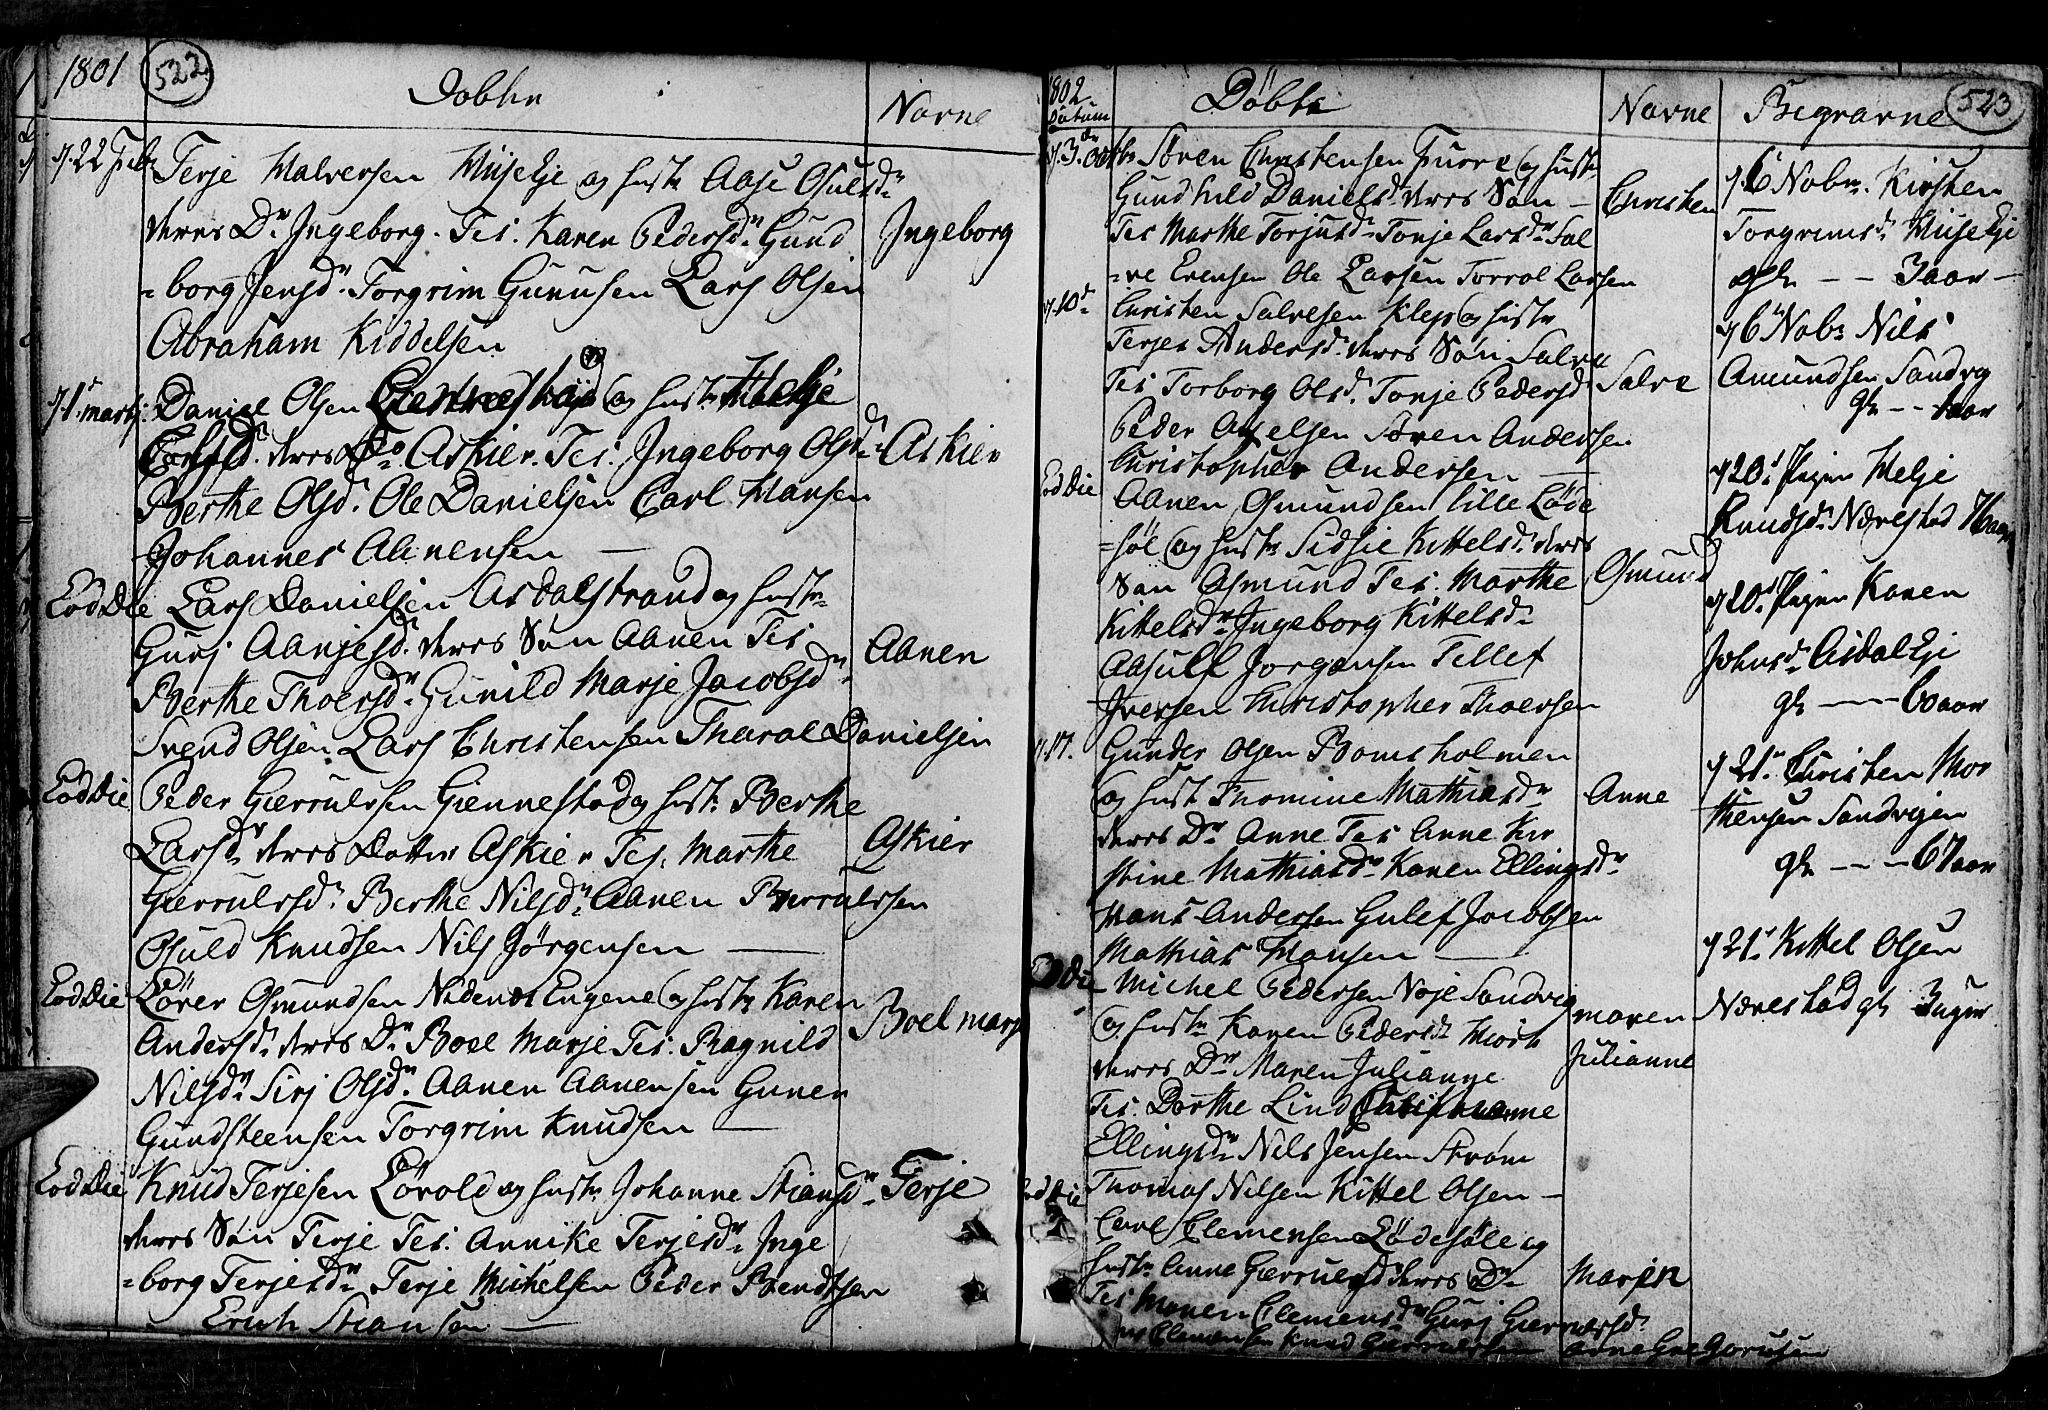 1801
522
Døbte
Navne
d. 22 Feb.
Terje Halversen Huseeje og Hustr Aase Osulsdr
deres Dr Ingeborg. Tes. Karen Pedersdr Gund
=borg Jensdr Torgrim Gunusen Lars Olsen
Abraham Kiddelsen
Ingeborg
d. 1. marts:
Daniel Olsen og Hustr Helje
deres Askier. Tes. Ingeborg Olsdr
Berthe Olsdr Ole Danielsen Carl Hansen
Johannes Aanensen —
Askier
Eod Die
Lars Danielsen Asdalstrand og Hustr
Gurj Aanjesdr deres Søn Aanen Tes
Berthe Thoersdr Gunild Marje Jacobsdr
Svend Olsen Lars Christensen Tharal Danielsen
Aanen
Eod Die
Peder Gierrulssen Giennestad og Hustr Berthe
Larsdr deres Datter Askier Tes. Marthe
Gierrulssdr Berthe Nilsdr Aanen Berrulssen
Osuld Knudsen Nils Jørgensen —
Askier
Eod Die
Osmundsen Nedenes Engene og Hustr Karen
Andersdr deres Dr Boel Marje Tes. Ragnild
Nilsdr Sirj Olsdr Aanen Aanensen Gunder
Gundsteensen Torgrim Knudsen —
Boel marje
Eod Die
Knud Terjesen Løvold og Hustr Johanne Stiansdr
deres Søn Terje Tes. Annike Terjesdr Inge
=borg Terjesdr Terje Michelsen Peder Bendtsen
Erich Stiansen —
Terje
1802
Datum
Døbte
Navne
Begravne
523
d. 3. Octbr
Søren Christensen Furre og Hustr
Gundhild Danielsdr deres Søn —
Tes Marthe Torjusdr Tonje Larsdr Sal
=ve Evensen Ole Larsen Torrol Larsen
Christen
d. 10de
Christen Salvesen Klep og Hustr
Terjer Andersdr deres Søn Salve
Tes Torborg Olsdr Tonje Pedersdr
Peder Axelsen Søren Andersen
Christopher Andersen —
Salve
Eod Die
Aanen Osmundsen lille Løde
=søl og Hustr Sidsie Kittelsdr deres
Søn Osmund Tes. Marthe
Kittelsdr Ingeborg Kittelsdr
Aasulf Jorgensen Tellef
Iversen Christopher Thoersen
Osmund
d. 17.
Gunder Olsen Bomsholmen
og Hustr Thomine Mathiasdr
deres Dr Anne Tes Anne Kir
stine Mathiasdr Karen Ellingsdr
Hans Andersen Gulef Jacobsen
Mathias Hansen —
Anne
Eod Die
Michel Pedersen Noje Sandvig
og Hustr Karen Pedersdr
deres Dr Maren Julianne
Tes. Dorthe Lind
Ellingsdr Nils Jensen Strøm
Thomas Nilsen Kittel Olsen —
maren
Julianne
Eod Die
Carl Clemensen Lødesøl og
Hustr Anne Gierruldsdr deres Dr
Tes Maren Clemensdr Gurj Gierruldsdr
Clemensen Knud Gierruldsen Arne Gregoriusen
Maren
d. 6 Nobr. Kirsten
Torgrimsdr Huseeje
gl. — — 3 aar —
d. 6 Nobr Nils
Amundsen Sandvig
gl. — — 1 aar
d. 20. Helje
Knudsdr Nærestad 76 aar
d. 20. Karen
Johnsdr Asdal Eje
gl. — — 6 aar
d. 21. Christen Mor
thensen Sandvigen
gl. — — 67 aar
d. 21. Kittel Olsen
Nærestad gl. 3 uger